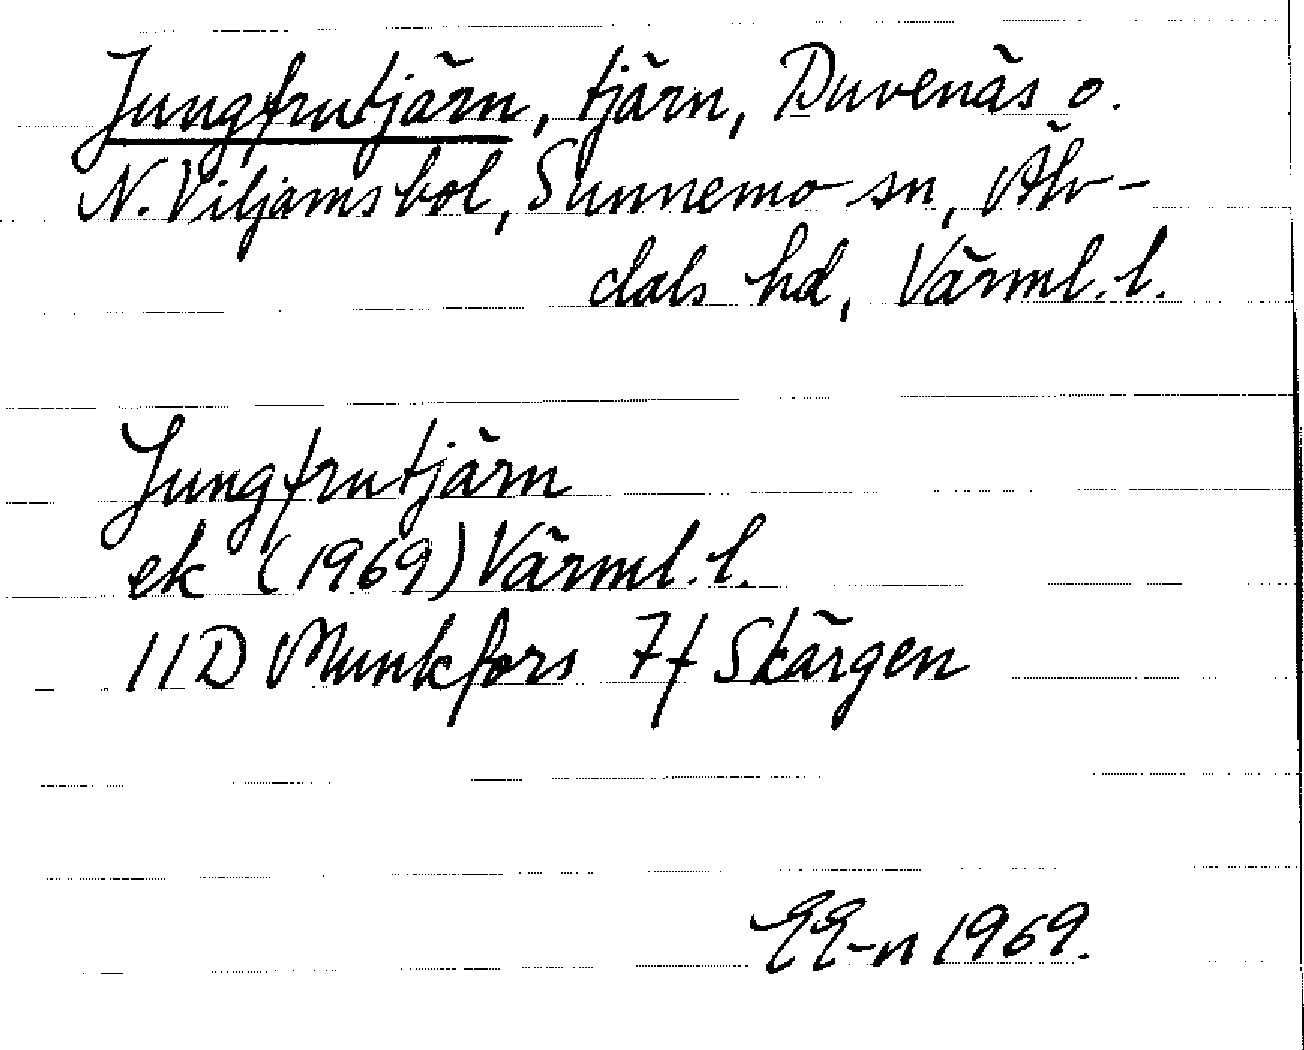 Jungfrutjärn, tjärn, Duvenäs o.
N. Viljamsbol, Sunnemo sn, Älv-
dals hd, Värml. l.
Jungfrutjärn
ek (1969) Värml. l.
11D Munkfors 7f Skärgen
EE-n 1969.